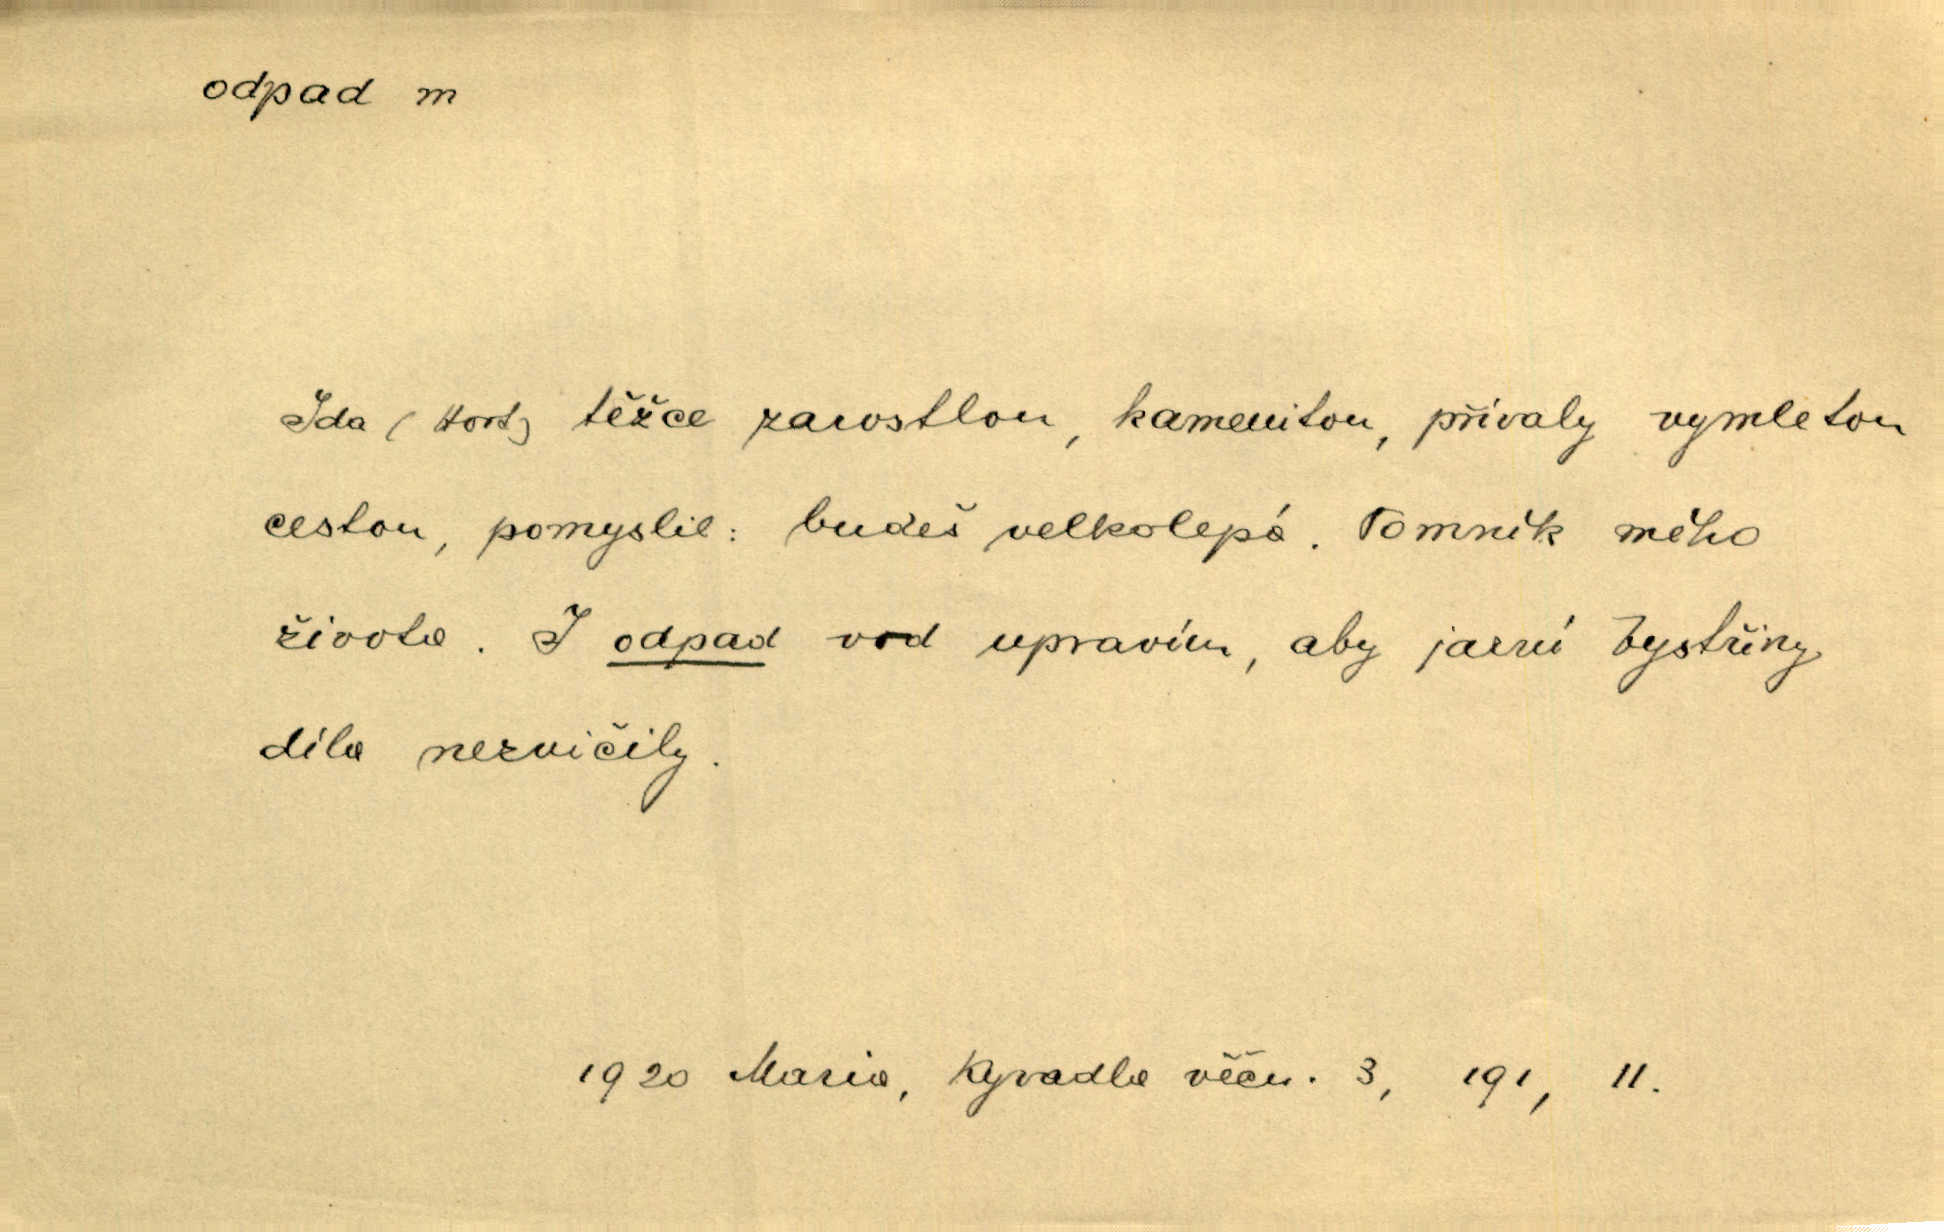 odpad m
Jda (Hort) těžce zarostlou, kamenitou, přívaly vymletou
cestou, pomyslil: budeš velkolepá. Pomník mého
života. I odpad vod upravím, aby jarní bystřiny
díla nezničily.
1920 Maria, Kyvadla věčn. 3, 191, 11.